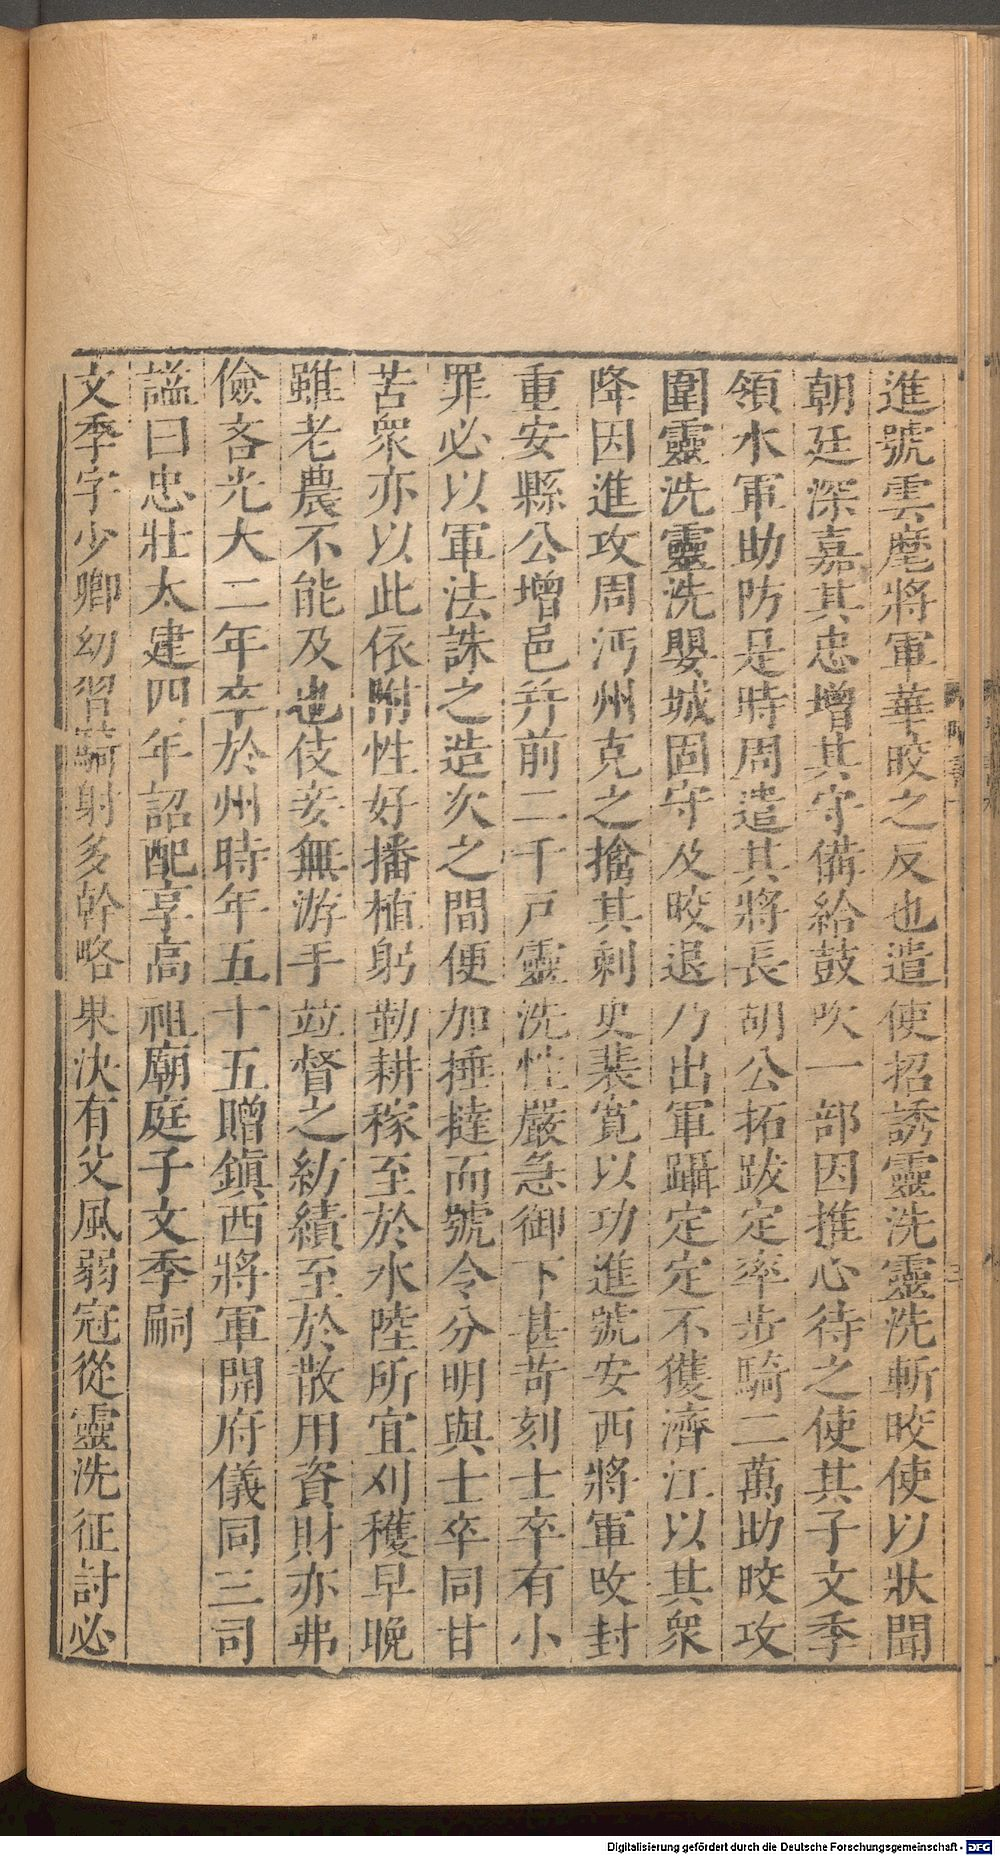 進號雲麾將軍華皎之反也遣使招誘靈洗靈洗斬皎使以狀聞
朝廷深嘉其忠增其守備給鼓吹一部因推心待之使其子文季
領水軍助防是時周遣其將長胡公拓跋定率步騎二萬助皎攻
圍靈洗靈洗嬰城固守及皎退乃出軍躡定定不獲濟江以其眾
降因進攻周沔州克之擒其刺史裴寛以功進號安西將軍攺封
重安縣公增邑并前二千戸靈洗性嚴急御下甚苛刻士卒有小
罪必以軍法誅之造次之間便加捶撻而號令分明與士卒同甘
苦眾亦以此依附性好播植躬勤耕稼至於水陸所宜刈穫早晚
雖老農不能及也伎妾無游手並督之紡績至於散用資財亦弗
儉吝光大二年卒於州時年五十五贈鎮西將軍開府儀同三司
謚曰忠壯太建四年詔配享高祖廟庭子文季嗣
文季字少卿幼習騎射多幹略果決有父風弱冠從靈洗征討必
Digitalisierung gefördert durch die Deutsche Forschungsgemeinschaft - DFG